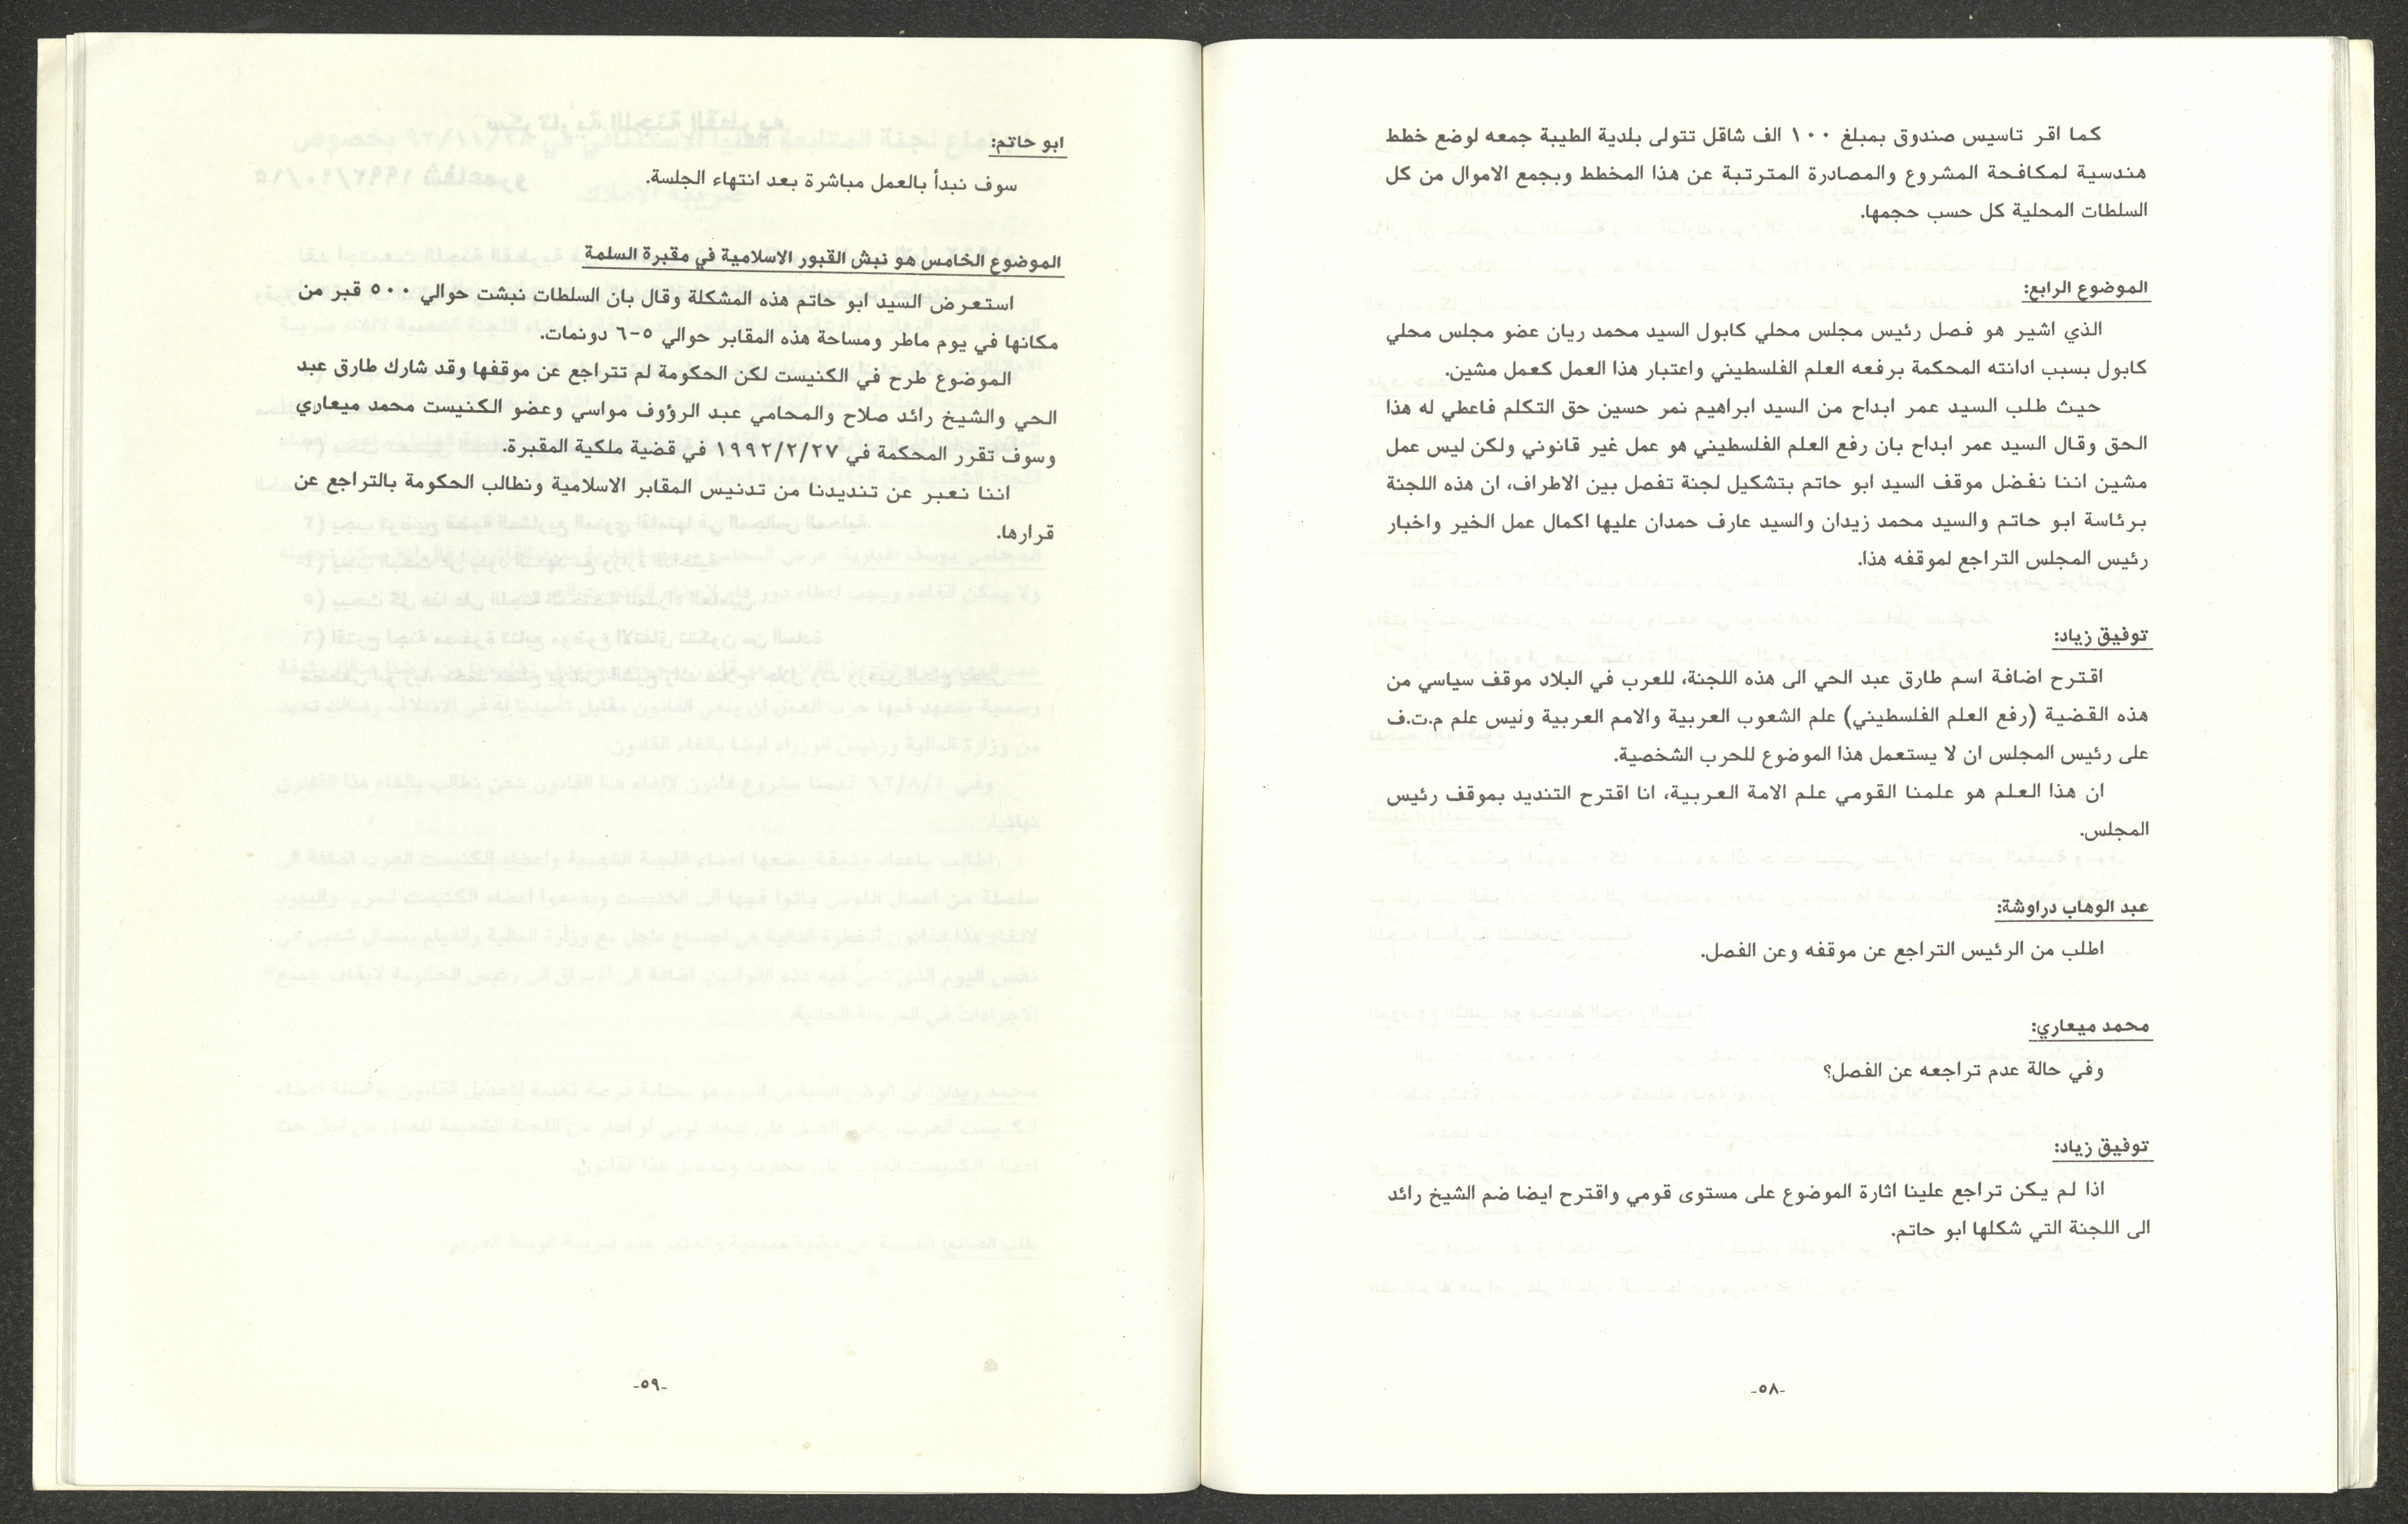 كما اقر تاسيس صندوق بمبلغ ١٠٠ الف شاقل تتولى بلدية الطيبة جمعه لوضع خطط
هندسية لمكافحة المشروع والمصادرة المترتبة عن هذا المخطط وبجمع الاموال من كل
السلطات المحلية كل حسب حجمها.
الموضوع الرابع:
الذي اشير هو فصل رئيس مجلس محلي كابول السيد محمد ريان عضو مجلس محلي
كابول بسبب ادانته المحكمة برفعه العلم الفلسطيني واعتبار هذا العمل كعمل مشين.
حيث طلب السيد عمر ابداح من السيد ابراهيم نمر حسين حق التكلم فاعطي له هذا
الحق وقال السيد عمر ابداح بان رفع العلم الفلسطيني هو عمل غير قانوني ولكن ليس عمل
مشين اننا نفضل موقف السيد ابو حاتم بتشكيل لجنة تفصل بين الاطراف، ان هذه اللجنة
برئاسة ابو حاتم والسيد محمد زيدان والسيد عارف حمدان عليها اكمال عمل الخير واخبار
رئيس المجلس التراجع لموقفه هذا.
توفيق زياد:
اقترح اضافة اسم طارق عبد الحي الى هذه اللجنة، للعرب في البلاد موقف سياسي من
هذه القضية (رفع العلم الفلسطيني) علم الشعوب العربية والامم العربية ونيس علم م.ت.ف
على رئيس المجلس ان لا يستعمل هذا الموضوع للحرب الشخصية.
ان هذا العلم هو علمنا القومي علم الامة العربية، انا اقترح التنديد بموقف رئيس
المجلس.
عبد الوهاب دراوشة:
اطلب من الرئيس التراجع عن موقفه وعن الفصل.
محمد ميعاري:
وفي حالة عدم تراجعه عن الفصل؟
توفيق زياد:
اذا لم يكن تراجع علينا اثارة الموضوع على مستوى قومي واقترح ايضا ضم الشيخ رائد
الى اللجنة التي شكلها ابو حاتم.
-٥٨-
ابو حاتم:
سوف نبدأ بالعمل مباشرة بعد انتهاء الجلسة.
الموضوع الخامس هو نبش القبور الاسلامية في مقبرة السلمة
استعرض السيد ابو حاتم هذه المشكلة وقال بان السلطات نبشت حوالي ٥٠٠ قبر من
مكانها في يوم ماطر ومساحة هذه المقابر حوالي ٥-٦ دونمات.
الموضوع طرح في الكنيست لكن الحكومة لم تتراجع عن موقفها وقد شارك طارق عبد
الحي والشيخ رائد صلاح والمحامي عبد الرؤوف مواسي وعضو الكنيست محمد ميعاري
وسوف تقرر المحكمة في ١٩٩٢/٢/٢٧ في قضية ملكية المقبرة.
اننا نعبر عن تنديدنا من تدنيس المقابر الاسلامية ونطالب الحكومة بالتراجع عن
قرارها.
-٥٩-